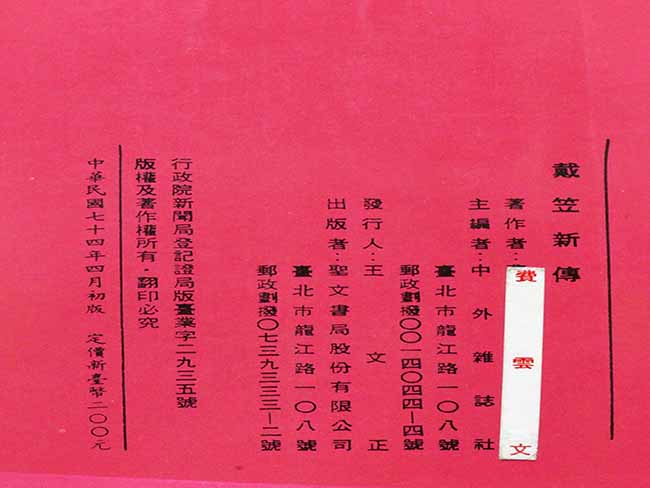 戴笠新傳
著作者：費雲文
主編者：中外雜誌社
臺北市龍江路一〇八號
郵政劃撥〇〇一四〇四四—四號
發行人：王文正
出版者：聖文書局股份有限公司
臺北市龍江路一〇八號
郵政劃撥〇七三九三三三—二號
行政院新聞局登記證局版臺業字二九三五號
版權及著作權所有・翻印必究
中華民國七十四年四月初版 定價新臺幣二〇〇元